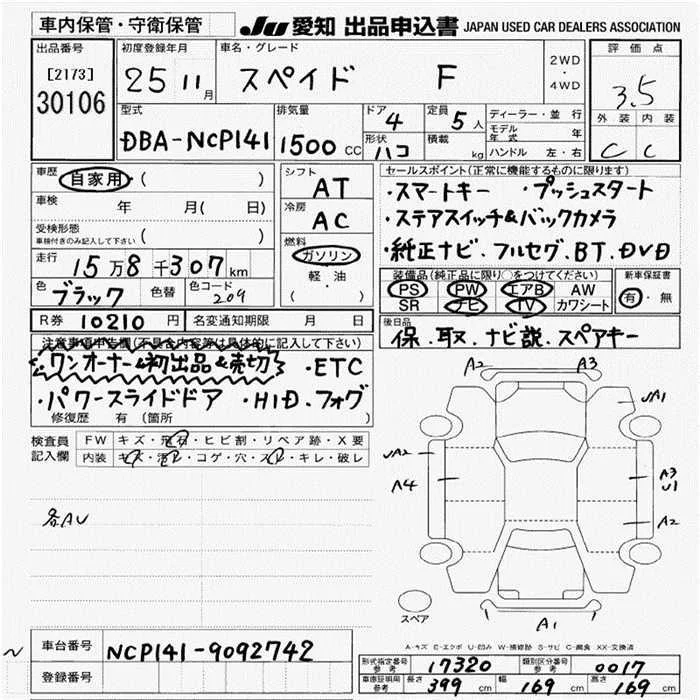 車内保管・守衛保管
JU 愛知 出品申込書 JAPAN USED CAR DEALERS ASSOCIATION
出品番号
[2173]
30106
初度登録年月
25 11月
車名・グレード
スペイド F
2WD
・
4WD
評価点
3.5
外装 内装
C C
型式
DBA-NCP141
排気量
1500 CC
ドア 4
形状 ハコ
定員 5人
積載 kg
ディーラー・並行
モデル年式 年
ハンドル 左・右
車歴
自家用・( )
車検 年 月( 日)
受検形態
車検付きのみ記入して下さい ( )
走行
15万8千307km
色 ブラック
色替
色コード 209
シフト
AT
冷房
AC
燃料
ガソリン
・
軽・油
( )
セールスポイント(正常に機能するものに限ります)
・スマートキー ・プッシュスタート
・ステアスイッチ&バックカメラ
・純正ナビ.フルセグ.BT.DVD
装備品(純正品に限り○をつけてください)
PS PW エアB AW
SR ナビ TV カワシート
新車保証書
有・無
R券 10210円
名変通知期限 月 日
後日品
保.取.ナビ説.スペアキー
注意事項申告欄(不具合内容等は具体的に記入して下さい)
ワンオーナー&初出品&売切 ・ETC
・パワースライドドア ・HID.フォグ
修復歴 有 (箇所 )
検査員
記入欄
FW キズ・飛石・ヒビ割・リペア跡・X要
内装 キズ・汚レ・コゲ・穴・スレ・キレ・破レ
各AU
A2 A3
UA1
UA2
A4
A3
U1
A2
A1
スペア
A-キズ E-エクボ U-凹み W-補修跡 S-サビ C-腐食 XX-交換済
車台番号 NCP141-9092742
登録番号
型式指定番号 参考 17320
類別区分番号 参考 0017
車庫証明用 参考 長さ 399 cm 幅 169 cm 高さ 169 cm